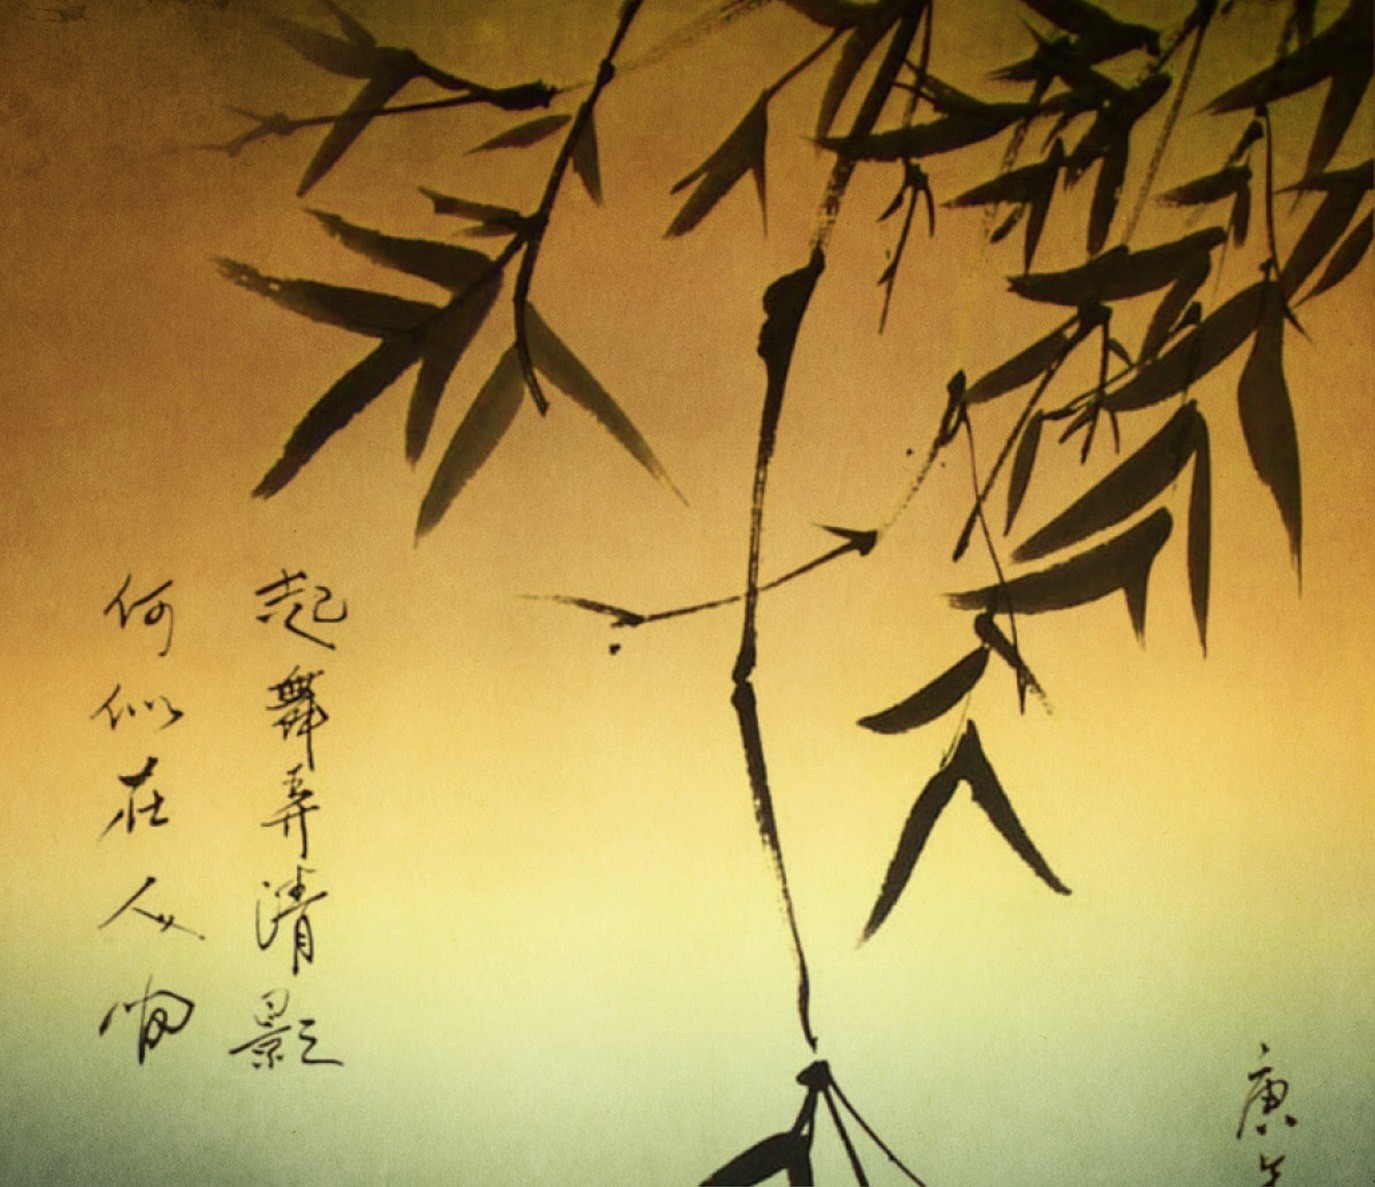 起舞弄清影
何似在人間
庚